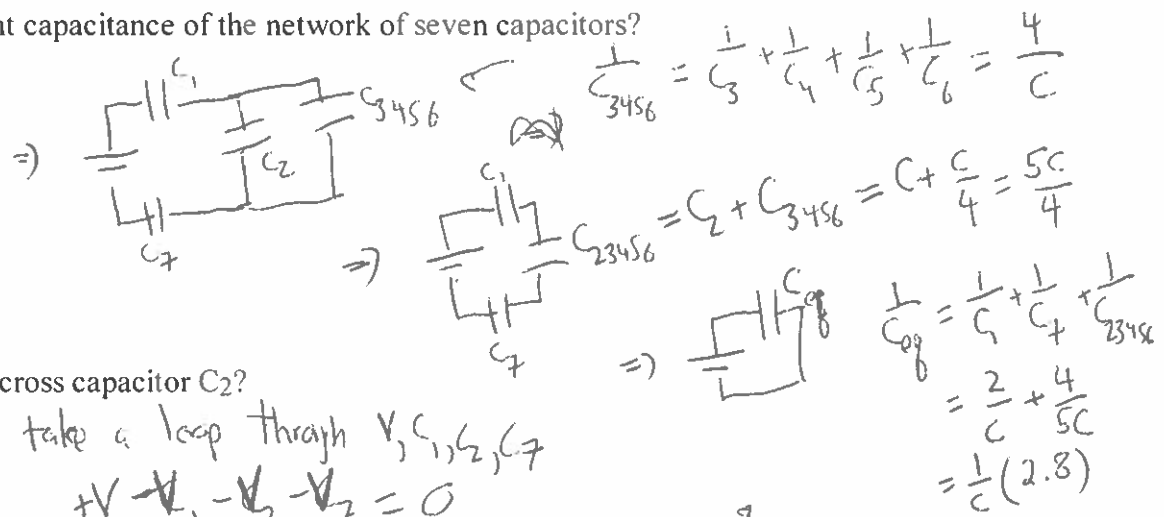 nt capacitance of the network of seven capacitors?
1/C3456 = 1/C3 + 1/C4 + 1/C5 + 1/C6 = 4/C
=> C1 C2 C3456 C7
=> C1 C7 C23456 = C2 + C3456 = C + C/4 = 5C/4
=> Ceq 1/Ceq = 1/C1 + 1/C7 + 1/C23456
= 2/C + 4/5C
= 1/C (2.8)
cross capacitor C2?
take a loop through V, C1, C2, C7
+V -V1 -V2 -V7 = 0